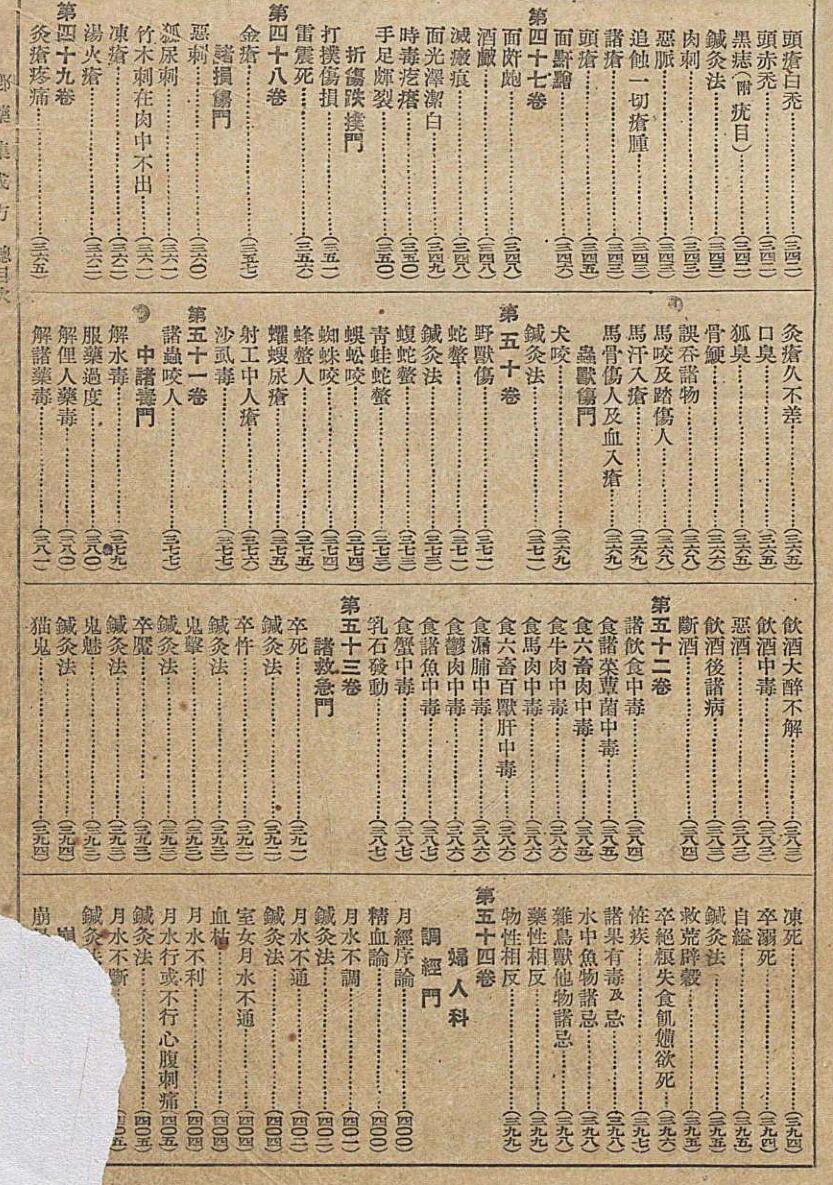 頭瘡白禿(三四二)
頭赤禿(三四二)
黑痣(附疣目)(三四二)
鍼灸法(三四三)
肉刺(三四三)
惡脈(三四三)
追蝕一切瘡腫(三四三)
諸瘡(三四三)
頭瘡(三四五)
面䵟䵳(三四六)
第四十七卷
面皯皰(三四八)
酒齄(三四八)
滅瘢痕(三四八)
面光澤潔白(三四九)
時毒疙瘩(三五〇)
手足皸裂(三五〇)
折傷跌撲門
打撲傷損(三五一)
雷震死(三五六)
第四十八卷
金瘡(三五七)
諸損傷門
惡刺(三六〇)
狐尿刺(三六一)
竹木刺在肉中不出(三六一)
凍瘡(三六二)
湯火瘡(三六二)
第四十九卷
灸瘡疼痛(三六五)
灸瘡久不差(三六五)
口臭(三六五)
狐臭(三六五)
骨鯁(三六六)
誤吞諸物(三六八)
馬咬及踏傷人(三六八)
馬汗入瘡(三六九)
馬骨傷人及血入瘡(三六九)
蟲獸傷門
犬咬(三六九)
鍼灸法(三七一)
第五十卷
野獸傷(三七一)
蛇螫(三七一)
鍼灸法(三七三)
蝮蛇螫(三七三)
青蛙蛇螫(三七三)
蜈蚣咬(三七四)
蜘蛛咬(三七四)
蜂螫人(三七五)
蠼螋尿瘡(三七五)
射工中人瘡(三七六)
沙虱毒(三七七)
第五十一卷
諸蟲咬人(三七七)
中諸毒門
解水毒(三七九)
服藥過度(三八〇)
解俚人藥毒(三八〇)
解諸藥毒(三八一)
飲酒大醉不解(三八三)
飲酒中毒(三八三)
惡酒(三八三)
飲酒後諸病(三八三)
斷酒(三八四)
第五十二卷
諸飲食中毒(三八四)
食諸菜蕈菌中毒(三八五)
食六畜肉中毒(三八五)
食牛肉中毒(三八六)
食馬肉中毒(三八六)
食六畜百獸肝中毒(三八六)
食漏脯中毒(三八六)
食鬱肉中毒(三八六)
食諸魚中毒(三八七)
食蟹中毒(三八七)
乳石發動(三八七)
第五十三卷
諸救急門
卒死(三九一)
鍼灸法(三九二)
卒忤(三九二)
鍼灸法(三九三)
鬼擊(三九三)
鍼灸法(三九三)
卒魘(三九三)
鍼灸法(三九三)
鬼魅(三九三)
鍼灸法(三九四)
猫鬼(三九四)
凍死(三九四)
卒溺死(三九四)
自縊(三九五)
鍼灸法(三九五)
救荒辟穀(三九五)
卒絕粮失食飢憊欲死(三九六)
恠疾(三九七)
諸果有毒及忌(三九八)
水中魚物諸忌(三九八)
雜鳥獸他物諸忌(三九八)
藥性相反(三九九)
物性相反(三九九)
第五十四卷
婦人科
調經門
月經序論(四〇〇)
精血論(四〇〇)
月水不調(四〇一)
鍼灸法(四〇二)
月水不通(四〇二)
鍼灸法(四〇四)
室女月水不通(四〇四)
血枯(四〇四)
月水不利(四〇四)
月水行或不行心腹刺痛(四〇五)
鍼灸法(四〇五)
月水不斷
鍼灸